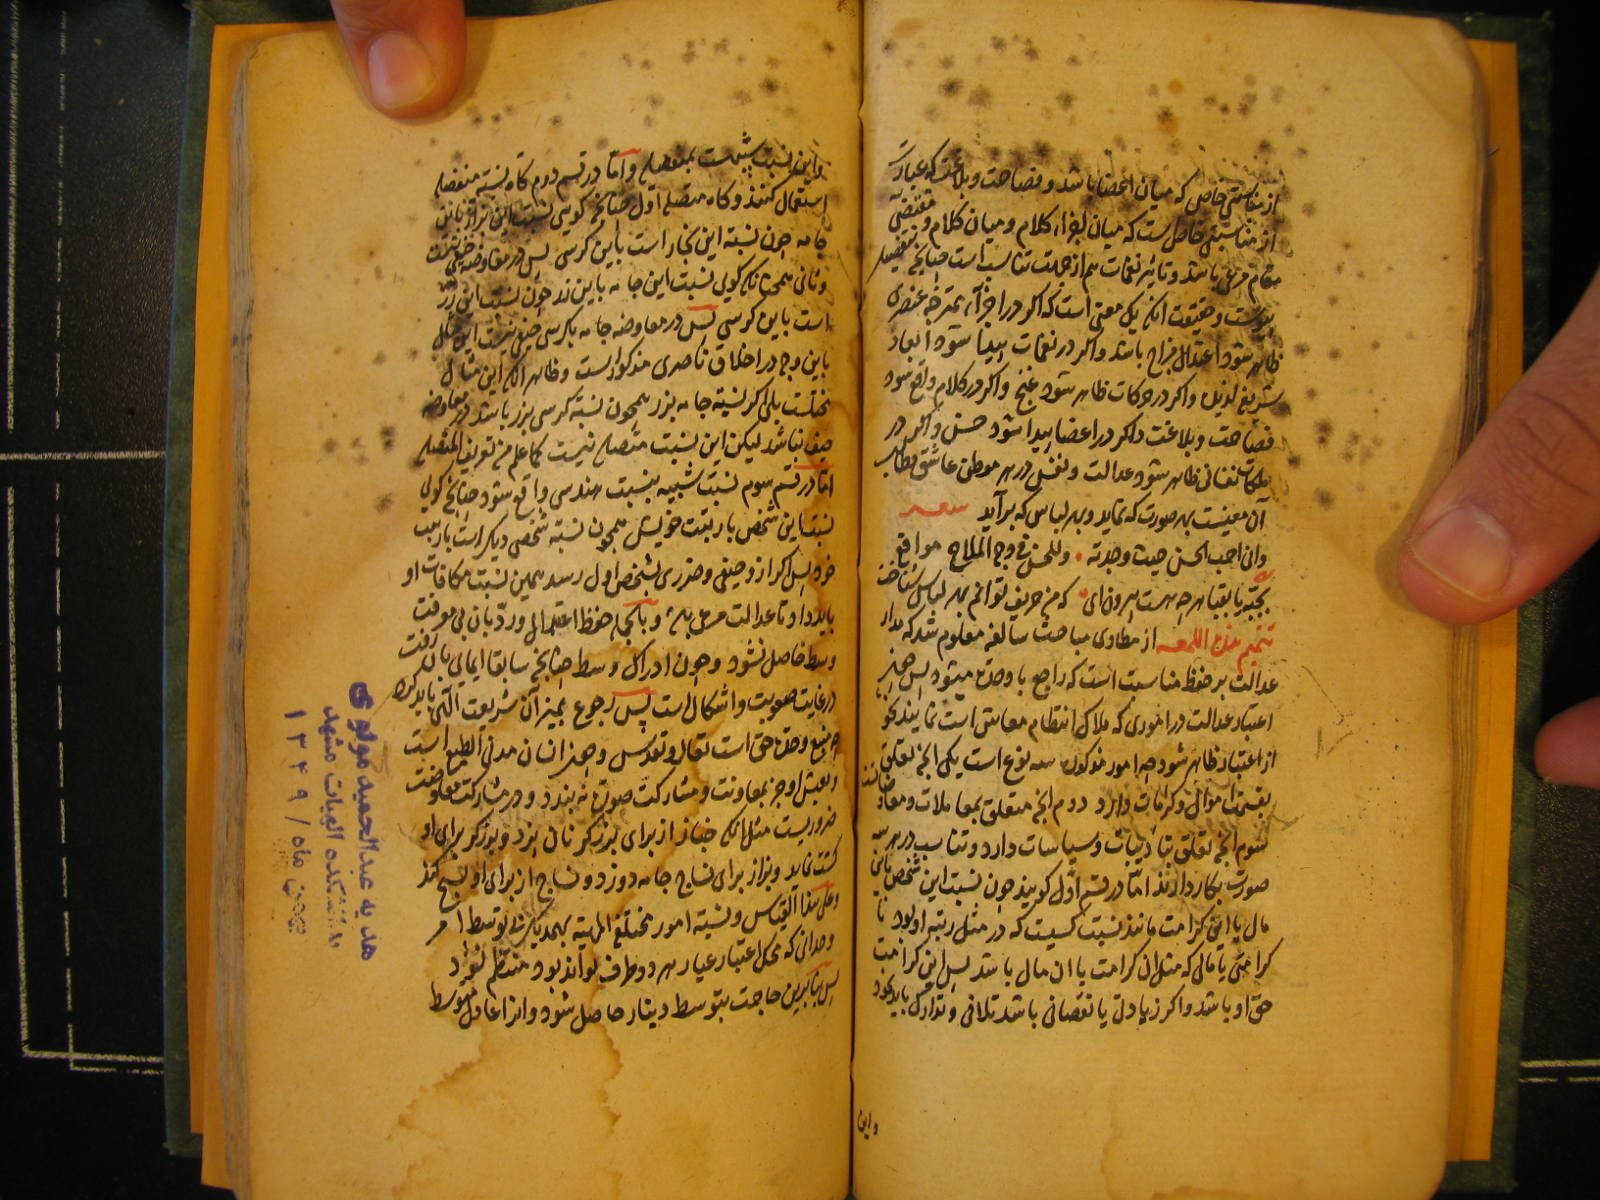 از مناسبتی خاص که میان اعضا باشد و فصاحت و بلاغت که عبارت
از مناسبتی خاص است که میان اجزاء کلام و میان کلام و مقتضی
مقام مرعی باشد و تاثیر نغمات هم از جهت تناسب است چنانچه
و حقیقت آنکه یک معنی است که اگر در اجزاء ممتزجه عنصری
ظاهر شود اعتدال مزاج باشد و اگر در نغمات پیدا شود ابعاد
شریفه لذیذه و اگر در حرکات ظاهر شود غنج و اگر در کلام واقع شود
فصاحت و بلاغت و اگر در اعضا پیدا شود حسن و اگر در
ملکات نفسانی ظاهر شود عدالت و نفس در هر موطن عاشق و طالب
آن معنیست بهر صورت که نماید و بهر لباس که برآید شعر
وانی احب الحسن حیث وجدته وللحسن فی وجه الملاح مواقع
که من حریف توانم بهر لباس شناخت
تتمیم هذه اللمعه از مطاوی مباحث سالفه معلوم شد که مدار
عدالت بر حفظ مناسبت است که راجع با وحدت میشود پس چنین
اعتبار عدالت در اموری که ملاک انتظام معاش است نمایند
از اعتبار ظاهر شود چه امور مذکوره سه نوع است یکی آنچه تعلق
بقسمت اموال و کرامات دارد دوم آنچه متعلق بمعاملات و معاوضات
سوم آنچه تعلق بتادیبات و سیاسات دارد و تناسب در هر سه
صورت بکار دارند اما در قسم اول گویند چون نسبت این شخص باین
مال یا این کرامت مانند نسبت کسیست که در مثل رتبه او بود با
کرامتی یا مالی که مثل آن کرامت یا آن مال باشد پس این کرامت
حق او باشد و اگر زیادتی یا نقصانی باشد تلافی و تدارک باید نمود
و این
و این نسبت شبیهست بمنفصله و اما در قسم دوم گاه نسبت منفصله
استعمال کنند و گاه متصله اول چنانچه گویی نسبت این بزاز باین
جامه چون نسبة این نجار است باین کرسی پس در معاوضه حیفی نیست
و ثانی همچنانکه گویی نسبت این جامه باین زر چون نسبت این زر
است باین کرسی پس در معاوضه جامه بکرسی حیفی نیست این مثل
باین وجه در اخلاق ناصری مذکورست و ظاهر آنکه این مثال
مختلست بلی اگر نسبة جامه بزر همچون نسبة کرسی بزر باشد در معاوضه
حیفی نباشد لیکن این نسبت متصله نیست کما علم من تعریف المتصله
اما در قسم سوم نسبت شبیه بنسبت هندسی واقع شود چنانچه گویی
نسبت این شخص با رتبت خویش همچون نسبة شخصی دیگر است با رتبت
خود پس اگر از و حیفی و ضرری بشخص اول رسد همین نسبت مکافات او
باید داد تا عدالت مرعی باشد و بالجمله حفظ اعتدال و رد بآن بی معرفت
وسط حاصل نشود و چون ادراک وسط چنانچه سابقا ایمائی بآن رفت
در غایت صعوبت و اشکال است پس رجوع بمیزان شریعت الهی باید کرد
چه منبع وحدت حق است تعالی و تقدس و چون انسان مدنی الطبع است
و تعیش او جز بمعاونت و مشارکت صورت نه بندد و در مشارکت معاوضت
ضروریست مثل آنکه خباز از برای برزگر نان پزد و برزگر برای او
کشت نماید و بزاز برای نساج جامه دوزد و نساج از برای او نسج کند
و علی هذا القیاس و نسبة امور مختلفة المهیة بهمدیگر بی توسط امر
وحدانی که محل اعتبار عیار هر دو طرف تواند بود منتظم نشود
پس بنابرین حاجت بتوسط دینار حاصل شود و انرا عادل متوسط
هدیه عبدالحمید مولوی
به دانشکده الهیات مشهد
بهمن ماه / ۱۳۴۹